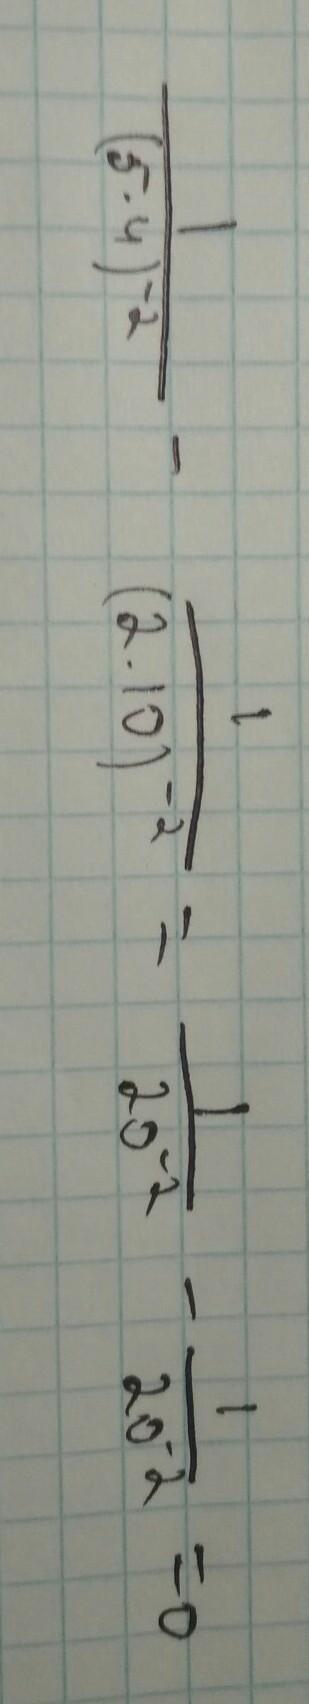 \frac{1}{(5 \cdot 4)^{-2}} - \frac{1}{(2 \cdot 10)^{-2}} = \frac{1}{20^{-2}} - \frac{1}{20^{-2}} = 0